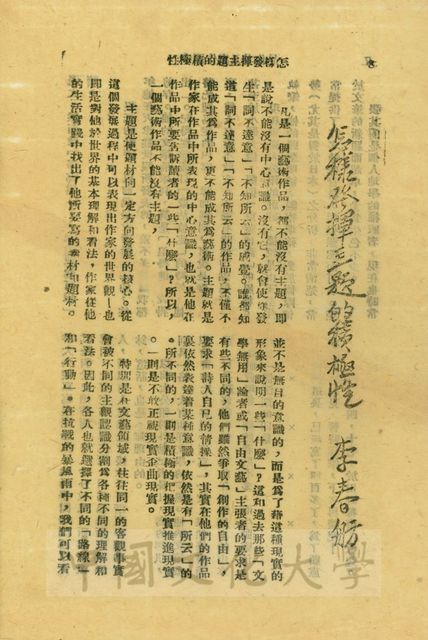 怎樣發揮主題的積極性
怎樣發揮主題的積極性　李春舫
凡是一個藝術作品，都不能沒有主題，即
是說不能沒有中心意識。沒有它，就會使
生「詞不達意」「不知所云」的感覺。
道「詞不達意」「不知所云」的作品，不僅不
能成其爲作品，更不能成其爲藝術。主題就是
作家在作品中所表現的中心意識，也就是他在
作品中所要告訴讀者的一些「什麼」？所以，
一個藝術作品不能沒有主題，
主題是使題材向一定方向發展的核心。從
這個發展過程中可以表現出作家的世界觀—也
即是對他於世界的基本理解和看法，作家從他
的生活實踐中找出了他所要寫的素材和題材。
並不是無目的意識的，而是爲了藉這種現實的
形象來說明一些「什麼」？這和過去那些「文
學無用」論者或「自由文藝」主張者的要求是
有些不同的，他們雖然爭取「創作的自由」，
要求「詩人自己的情操」，其實在他們的作品
裏依然表達着某種意識，依然是有「所云」的
。所不同的，一則是積極的把握現實推進現實
。一則是不敢正視現實歪曲現實。
人，特別是在文藝領域，往往同一的客觀事實
會被不同的主觀認識分割爲各種不同的理解和
看法。因此，各人也就選擇了不同的「路線」
和「行動」。在抗戰的暴風雨中，我們可以看
中國文化大學